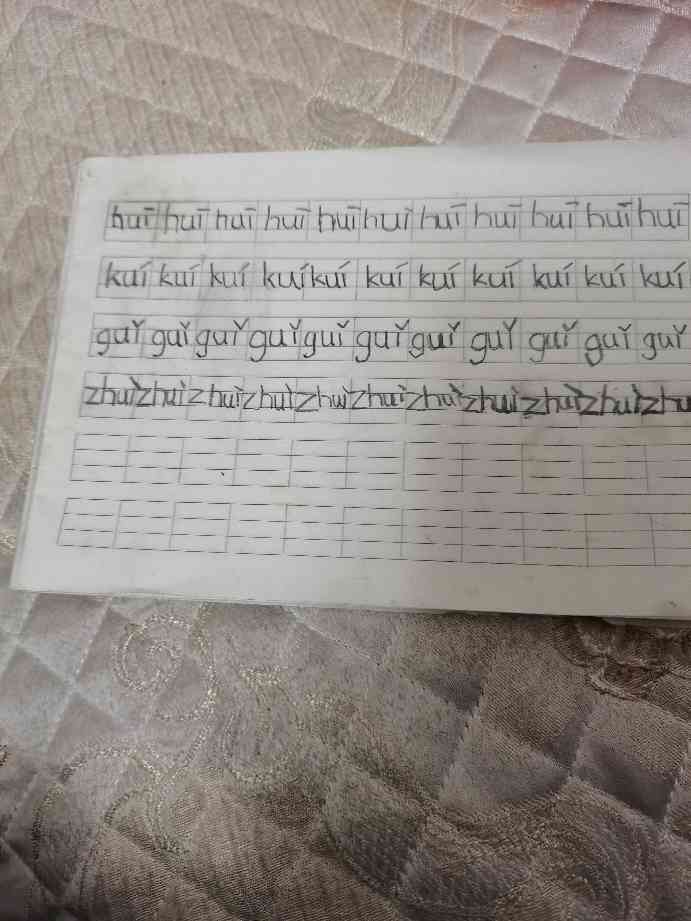 huī huī huī huī huī huī huī huī huī huī huī
kuí kuí kuí kuí kuí kuí kuí kuí kuí kuí kuí
guǐ guǐ guǐ guǐ guǐ guǐ guǐ guǐ guǐ guǐ guǐ
zhuì zhuì zhuì zhuì zhuì zhuì zhuì zhuì zhuì zhuì zhu